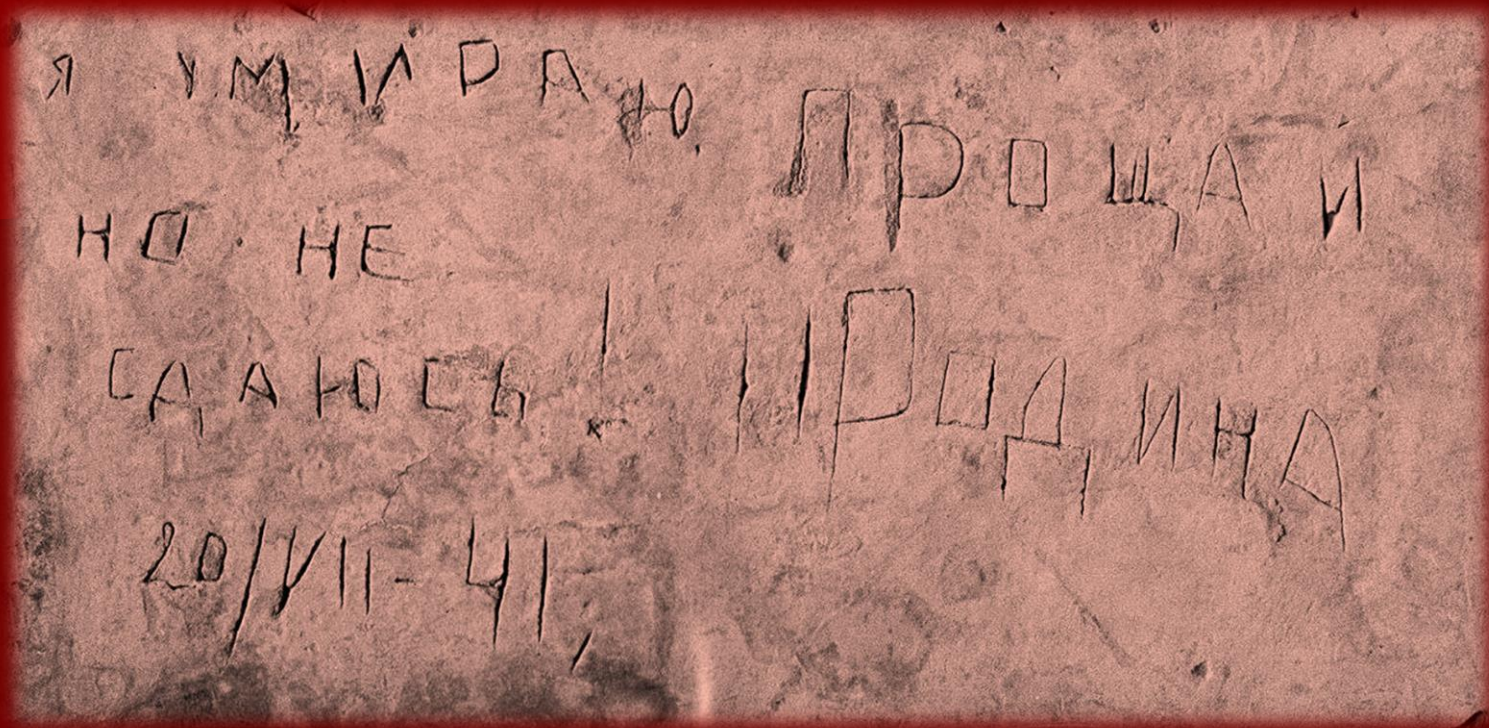 Я УМИРАЮ,
НО НЕ
СДАЮСЬ!
20/VII-41,
ПРОЩАЙ
РОДИНА